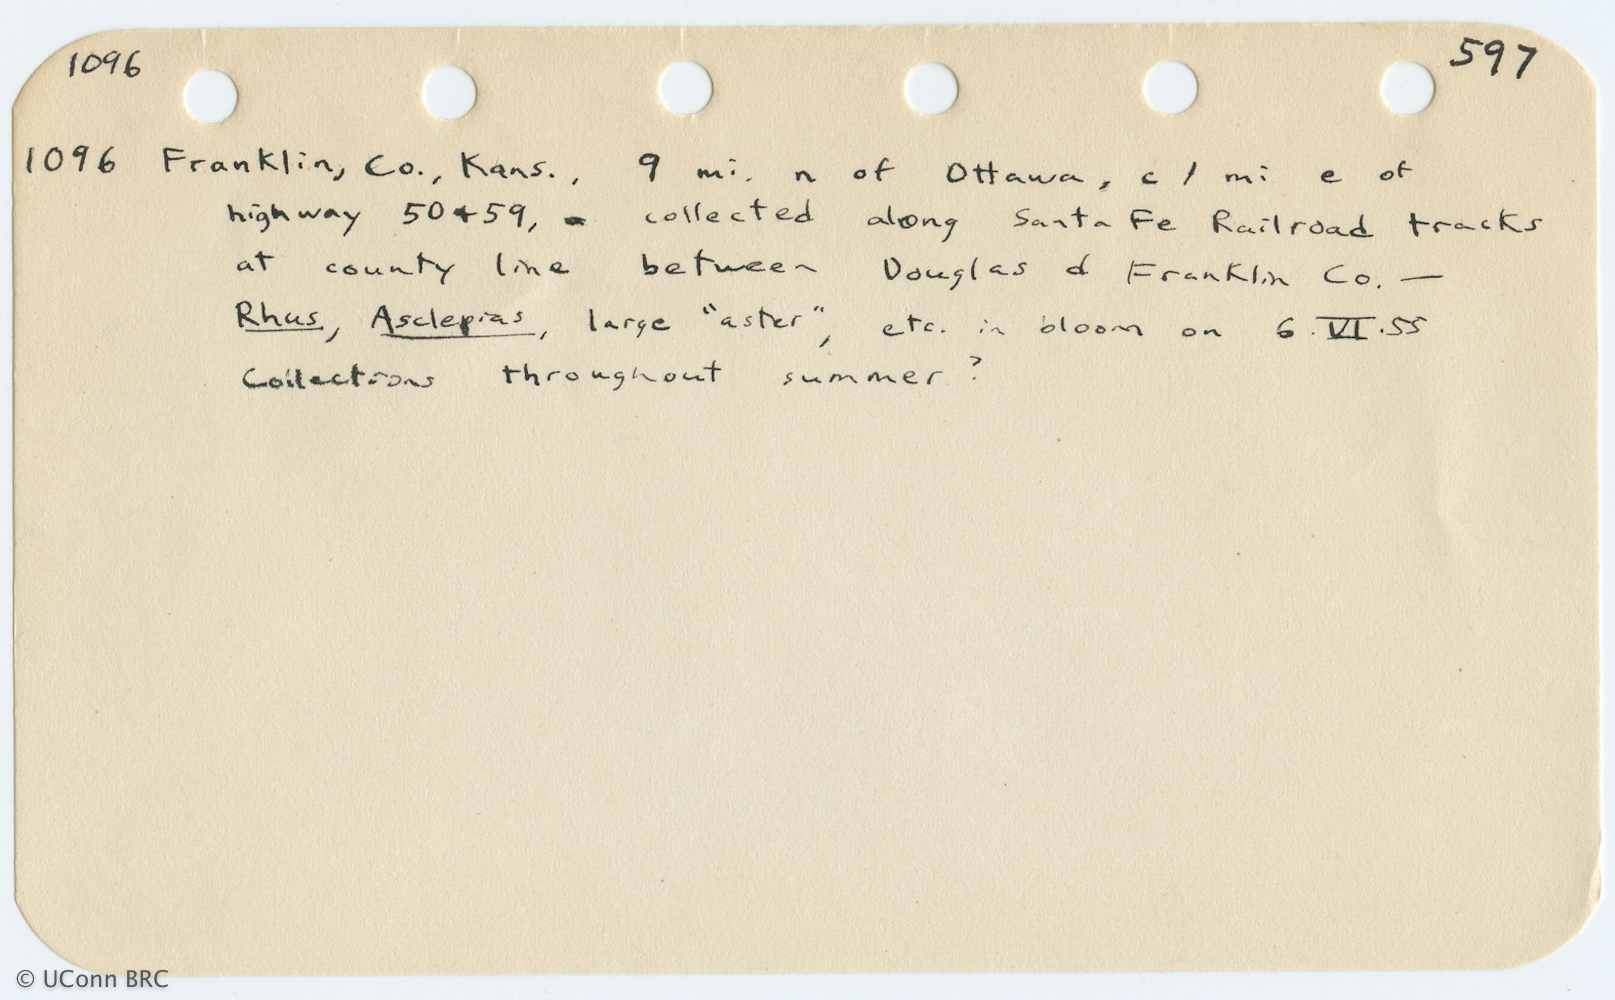 1096 597
1096 Franklin, Co., Kans., 9 mi. n of Ottawa, c 1 mi e of
highway 50+59, collected along Santa Fe Railroad tracks
at county line between Douglas & Franklin Co. —
Rhus, Asclepias, large "aster", etc. in bloom on 6.VI.55
Collections throughout summer?
© UConn BRC